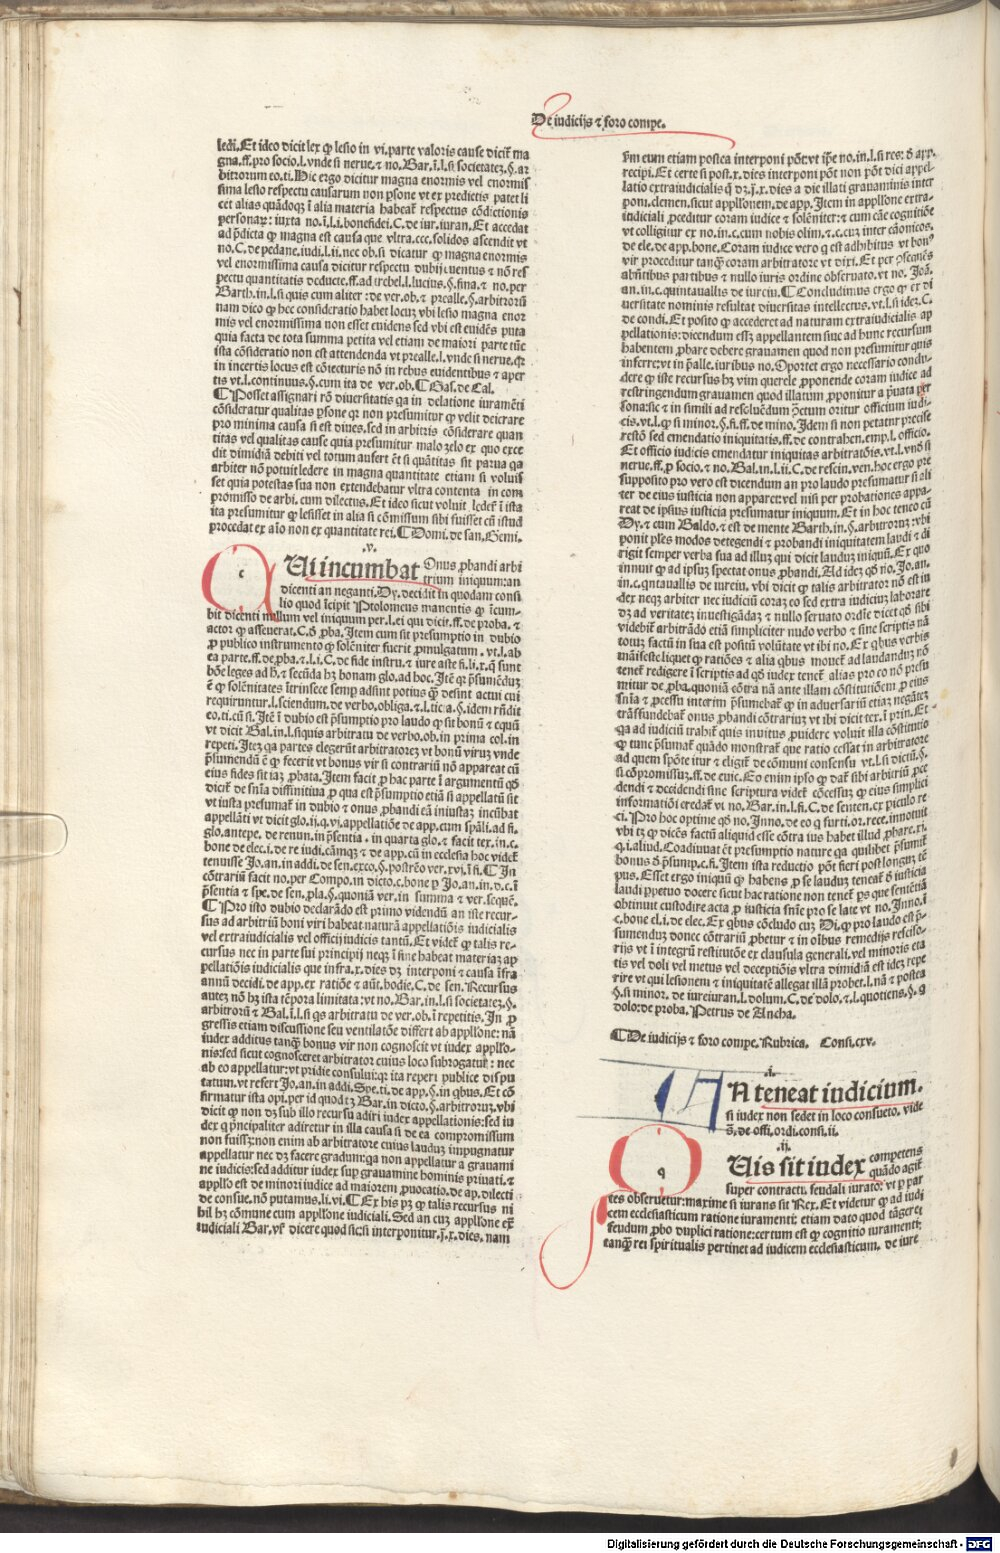 De iudicijs ⁊ foro compe.
ledi. Et ideo dicit lex ꝙ lesio in vi. parte valoris cause dicit̄ ma
gna. ff. pro socio. l. vnde si nerue. ⁊ no. Bar. ī. l. si societatez. §. ar
bitrorum eo. ti. Hic ergo dicitur magna enormis vel enormis
sima lesio respectu causarum non p̄sone vt ex predictis patet li
cet alias quādoqꝫ ī alia materia habeat̄ respectus cōdictionis
personaꝝ: iuxta no. ī. l. i. bonefidei. C. de iur. iuran. Et accedat
ad p̄dicta ꝙ magna est causa que vltra. ccc. solidos ascendit vt
no. C. de pedane. iudi. l. ii. nec ob. si dicatur ꝙ magna enormis
vel enormissima causa dicitur respectu dubij euentus ⁊ nō res
pectu quantitatis deducte. ff. ad trebel. l. lucius. §. fina. ⁊ no. per
Barth. in. l. si quis cum aliter: de ver. ob. ⁊ prealle. §. arbitrorū
nam dico ꝙ hec consideratio habet locuꝫ vbi lesio magna enor
mis vel enormissima non esset euidens sed vbi est euidēs puta
quia facta de tota summa petita vel etiam de maiori parte tūc
ista cōsideratio non est attendenda vt prealle. l. vnde si nerue. qꝛ
in incertis locus est cōiecturis nō in rebus euidentibus ⁊ aper
tis vt. l. continuus. §. cum ita de ver. ob. ¶ Gas. de Cal.
¶ Posset assignari rō diuersitatis qꝛ in delatione iuramēti
cōsideratur qualitas p̄sone qꝛ non presumitur ꝙ velit deierare
pro minima causa si est diues. sed in arbitris cōsiderare quan
titas vel qualitas cause quia presumitur malo zelo ex quo exce
dit dimidiā debiti vel totum aufert ēt si quātitas sit parua qꝛ
arbiter nō potuit ledere in magna quantitate etiam si voluis
set quia potestas sua non extendebatur vltra contenta in com
promisso de arbi. cum dilectus. Et ideo sicut voluit ledere ī ista
ita presumitur ꝙ lesisset in alia si cōmissum sibi fuisset cū istud
procedat ex aīo non ex quantitate rei. ¶ Domi. de san. Gemi.
.v.
c Ui incumbat Onus ꝓbandi arbi
trium iniquum: an
dicenti an neganti. Dy. decidit in quodam consi
lio quod īcipit Ptolomeus manentis ꝙ īcum-
bit dicenti nullum vel iniquum per. l. ei qui dicit. ff. de proba. ⁊
actor ꝙ asseuerat. C. d̄ ꝓba. Item cum sit presumptio in dubio
ꝓ publico instrumento ꝙ solēniter fuerit ꝓmulgatum. vt. l. ab
ea parte. ff. de ꝓba. ⁊. l. i. C. de fide instru. ⁊ iure aste fi. li. x. q̄ sunt
requiruntur. l. sciendum. de verbo. obliga. ⁊. l. titia. §. idem rn̄dit
eo. ti. cū si. Itē ī dubio est p̄sumptio pro laudo ꝙ sit bonū ⁊ equū
vt dicit Bal. in. l. si quis arbitratu de verbo. ob. in prima col. in
repeti. Iteꝫ qꝛ partes elegerūt arbitratoreꝫ vt bonū viruꝫ vnde
p̄sumendū ē ꝙ fecerit vt bonus vir si contrariū nō appareat cū
eius fides sit iaꝫ ꝓbata. Item facit ꝓ hac parte ī argumentū qd̄
dicit̄ de sn̄ia diffinitiua ꝓ qua est p̄sumptio etiā si appellatū sit
vt iusta presumat̄ in dubio ⁊ onus ꝓbandi eā iniustaꝫ incūbat
appellāti vt dicit glo. ii. q. vi. appellatiōe de app. cum sp̄ali. ad fi.
glo. antepe. de renun. in p̄sentia. in quarta glo. ⁊ facit tex. in. c.
bone de elec. i. de re iudi. cāmqꝫ ⁊ de app. cū in ecclesia hoc videt̄
tenuisse Jo. an. in addi. de sen. exco. §. postrēo ver. xvi. ī fi. ¶ In
cōtrariū facit no. per Compo. in dicto. c. bone ꝑ Jo. an. in. d. c. ī
p̄sentia ⁊ spe. de sen. ꝓla. §. quoniā ver. in summa ⁊ ver. seqūē.
¶ Pro isto dubio declarādo est primo videndū an iste recur-
sus ad arbitriū boni viri habeat naturā appellatiōis iudicialis
vel extraiudicialis vel officij iudicis tantū. Et videt̄ ꝙ talis re-
cursus nec in parte sui principij neqꝫ ī fine habeat materiaꝫ ap
pellatiōis iudicialis que infra. x. dies dꝫ interponi ⁊ causa īfra
annū decidi. de app. ex ratiōe ⁊ aūt. hodie. C. de sen. Recursus
autez nō hꝫ ista tēpora limitata: vt no. Bar. in. l. si societatez. §.
arbitrorū ⁊ Bal. ī. l. si qs arbitratu de ver. ob. ī repetitis. In ꝓ
gressis etiam discussione seu ventilatōe differt ab appllone: nā
iudex additus tanqꝫ bonus vir non cognoscit vt iudex appllo-
nis: sed sicut cognosceret arbitrator cuius loco subrogatur: nec
ab eo appellatur: vt pridie consului: qꝛ ita reperi publice dispu
tatum. vt refert Jo. an. in addi. Spe. ti. de app. §. in qbus. Et cō
firmatur ista opi. per id quod tꝫ Bar. in dicto. §. arbitroruꝫ. vbi
dicit ꝙ non dꝫ sub illo recursu adiri iudex appellationis: sed iu
dex q p̄ncipaliter adiretur in illa causa si de ea compromissum
non fuisset: non enim ab arbitratore cuius laudum impugnatur
appellatur nec dꝫ facere gradum: qꝛ non appellatur a grauami
ne iudicis: sed additur iudex sup grauamine hominis priuati. ⁊
appllo est de minori iudice ad maiorem ꝓuocatio. de ap. dilecti
de consue. nō putamus. li. vi. ¶ Ex his pꝫ ꝙ talis recursus ni
bil hꝫ cōmune cum appllone iudiciali. Sed an cuꝫ appllone ex̄
iudiciali Bar. vr̄ dicere quod sic: si interponitur. ī. x. dies. nam
recipi. Et certe si post. x. dies interponi pōt non pōt dici appel-
latio extraiudicialis q̄ dꝫ. ī. x. dies a die illati grauaminis inter
poni. clemen. sicut appllonem. de app. Item in appllone extra-
iudiciali ꝓceditur coram iudice ⁊ solēniter: ⁊ cum cāe cognitiōe
vt colligitur ex no. in. c. cum nobis olim. ⁊. c. cuꝫ inter cānonicos.
de ele. de app. bone. Coram iudice vero q̄ est adhibitus vt bon⁹
vir proceditur tanqꝫ coram arbitratore vt dixi.
an. in. c. quintauallis de iureiu. ¶ Concludimus ergo ꝙ ex di
uersitate nominis resultat diuersitas intellectus. vt. l. si ideꝫ. C.
de condi. Et posito ꝙ accederet ad naturam extraiudicialis ap
pellationis: dicendum esset appellantem siue ad hunc recursum
habentem ꝓbare debere grauamen quod non presumitur quis
inferre: vt in p̄alle. iuribus no. Oportet ergo necessario conclu-
dere ꝙ iste recursus hꝫ vim querele ꝓponende coram iudice ad
restringendum grauamen quod illatum ꝓponitur a p̄uata per
sona: sic ⁊ in simili ad resoluēdum p̄ctum oritur officium iudi-
cis. vt. l. ꝙ si minor. §. fi. ff. de mino. Idem si non petatur precise
restō sed emendatio iniquitatis. ff. de contrahen. emp. l. officio.
Et officio iudicis emendatur iniquitas arbitratōis. vt. l. vnd̄ si
nerue. ff. ꝓ socio. ⁊ no. Bal. in. l. ii. C. de rescin. ven. hoc ergo pre
supposito pro vero est dicendum an pro laudo presumatur si ali
ter de eius iusticia non apparet: vel nisi per probationes appa-
reat de ipsius iusticia presumatur iniquum. Et in hoc teneo cū
Dy. ⁊ cum Baldo. ⁊ est de mente Barth. in. §. arbitroruꝫ: vbi
ponit ples modos detegendi ⁊ probandi iniquitatem laudi ⁊ di
rigit semper verba sua ad illuꝫ qui dicit lauduꝫ iniquū. Ex quo
innuit ꝙ ad ipsuꝫ spectat onus ꝓbandi. Ad ideꝫ qd̄ no. Jo. an.
in. c. qntauallis de iureiu. vbi dicit ꝙ talis arbitrator nō est iu
dex neqꝫ arbiter nec iudiciū coraꝫ eo sed extra iudiciuꝫ laborare
dꝫ ad veritateꝫ inuestigādaꝫ ⁊ nullo seruato ordīe dicet qd̄ sibi
videbit̄ arbitrādo etiā simpliciter nudo verbo ⁊ sine scriptis nā
totuꝫ factū in sua est positū volūtate vt ibi no. Ex qbus verbis
māifeste liquet ꝙ ratiōes ⁊ alia qbus mouet̄ ad laudanduꝫ nō
tenet̄ redigere ī scriptis ad qd̄ iudex tenet̄ alias pro eo nō presu
mitur de ꝓba. quoniā cōtra nā ante illam cōstitutiōem ꝓ eius
sn̄ia ⁊ ꝓcessu interim p̄sumebat̄ ꝙ in aduersariū etiaꝫ negātez
trāsfundebat̄ onus ꝓbandi cōtrariuꝫ vt ibi dicit ter. ī prin. Et
qꝛ ad iudiciū trahit̄ quis inuitus ꝓuidere voluit illa cōstitutio
ꝙ tunc p̄sumat̄ quādo monstrat̄ que ratio cessat in arbitratore
ad quem spōte itur ⁊ eligit̄ de cōmuni consensu vt. l. si dictū. §.
si cōpromissuꝫ. ff. de euic. Eo enim ipso ꝙ dat̄ sibi arbitriū ꝓce
dendi ⁊ decidendi sine scriptura videt̄ cōcessuꝫ ꝙ eius simplici
informatiōi credat̄ vt no. Bar. in. l. fi. C. de senten. ex piculo re
ci. Pro hoc optime qd̄ no. Inno. de eo q̄ furti. or. rece. innotuit
vbi tꝫ ꝙ dicēs factū aliquid esse cōtra ius habet illud ꝓbare. xi.
q. i. aliud. Coadiuuat ēt presumptio nature qꝛ quilibet p̄sumit̄
bonus d̄ p̄sump. c. fi. Item ista reductio pōt fieri post longuꝫ tē
pus. Esset ergo iniquū ꝙ habens ꝓ se lauduꝫ teneat̄ d̄ iusticia
laudi ꝑpetuo docere sicut hac ratione non tenet̄ ps que sentētiā
obtinuit custodire acta ꝓ iusticia snīe pro se late vt no. Inno. ī
c. bone el. i. de elec. Ex qbus cōcludo cuꝫ Di. ꝙ pro laudo est p̄-
sumenduꝫ donec cōtrariū ꝓbetur ⁊ in oībus remedijs rescisso-
rijs vt ī integrū restitutōe ex clausula generali. vel minoris eta
tis vel doli vel metus vel deceptiōis vltra dimidiā est ideꝫ repe
rire vt qui lesionem ⁊ iniquitatē allegat illā probet. l. nā ⁊ postea
§. si minor. de iureiuran. l. dolum. C. de dolo. ⁊. l. quotiens. §. q
dolo: de proba. Petrus de Ancha.
¶ De iudicijs ⁊ foro compe. Rubrica. Consi. cxv.
.i.
A N teneat iudicium.
si iudex non sedet in loco consueto. vide
s̄. de offi. ordi. consi. ii.
.ij.
q Uis sit iudex competens
quādo agit̄
super contractu. feudali iurato: vt ꝑ par
tes obseruetur: maxime si iurans sit Rex. Et videtur ꝙ ad iudi
cem ecclesiasticum ratione iuramenti: etiam dato quod tāgeret
feudum ꝓbo duplici ratione: certum est ꝙ cognitio iuramenti:
tanqꝫ rei spiritualis pertinet ad iudicem ecclesiasticum. de iure
Digitalisierung gefördert durch die Deutsche Forschungsgemeinschaft - DFG